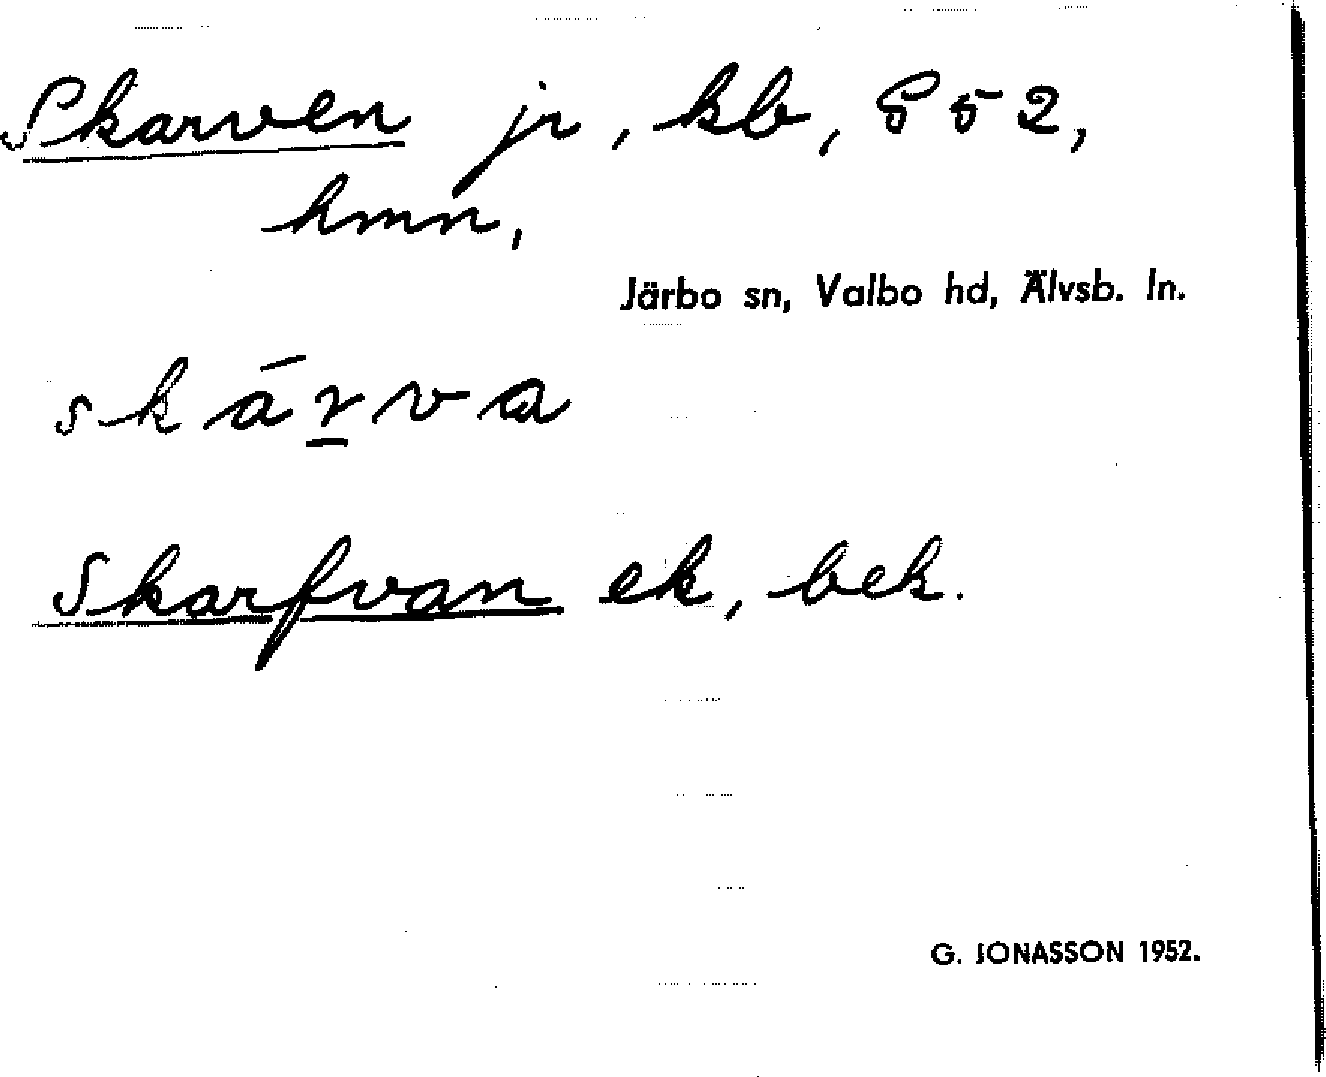 Skarven jr, kb, § 52,
hmn,
Järbo sn, Valbo hd, Älvsb. ln.
skárva
Skarfvan ek, bek.
G. JONASSON 1952.